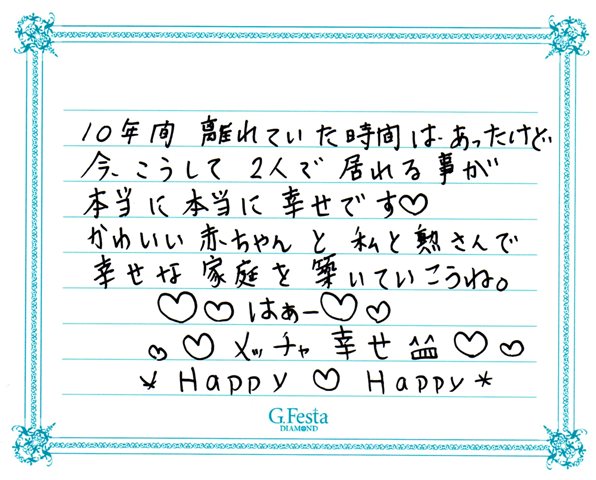 10年間 離れていた時間は、あったけど
今、こうして 2人で 居れる事が
本当に本当に幸せです♡
かわいい赤ちゃんと私と勲さんで
幸せな家庭を築いていこうね。
♡♡はぁー♡♡
♡♡メッチャ幸せ♡♡
*Happy♡Happy*
G.Festa
DIAMOND